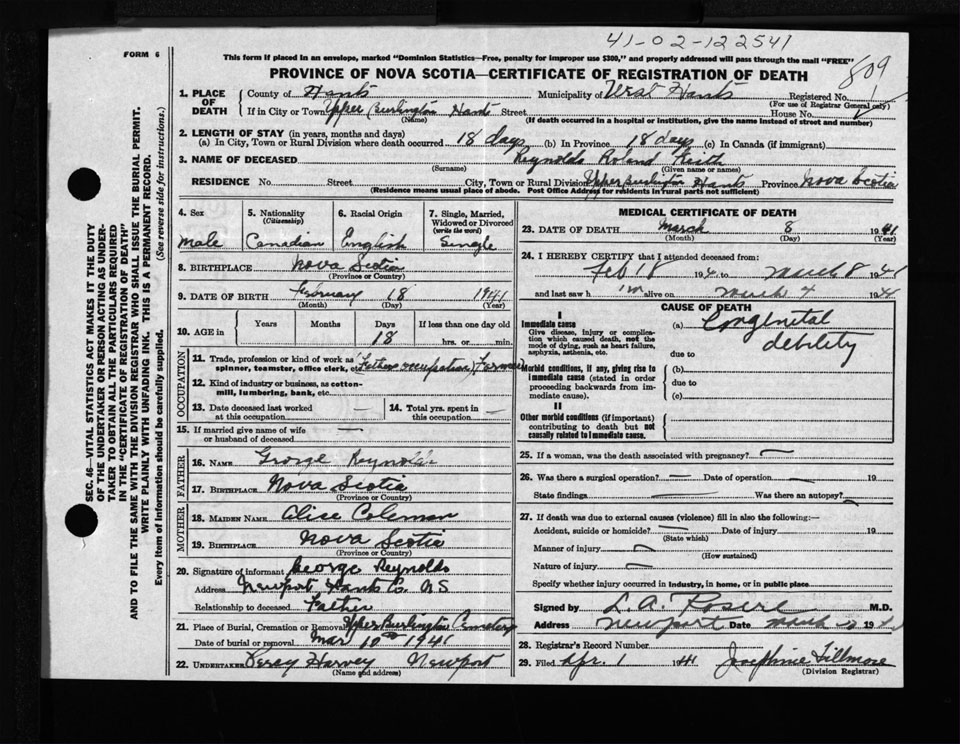 41-02-122541
809
FORM 6
This form if placed in an envelope, marked "Dominion Statistics—Free, penalty for improper use $300," and properly addressed will pass through the mail "FREE"
PROVINCE OF NOVA SCOTIA—CERTIFICATE OF REGISTRATION OF DEATH
SEC. 46—VITAL STATISTICS ACT MAKES IT THE DUTY
OF THE UNDERTAKER OR PERSON ACTING AS UNDER-
TAKER TO OBTAIN ALL THE PARTICULARS REQUIRED
IN THE "CERTIFICATE OF REGISTRATION OF DEATH"
AND TO FILE THE SAME WITH THE DIVISION REGISTRAR WHO SHALL ISSUE THE BURIAL PERMIT.
WRITE PLAINLY WITH UNFADING INK. THIS IS A PERMANENT RECORD.
Every item of information should be carefully supplied. (See reverse side for instructions.)
1. PLACE OF DEATH
County of Hants Municipality of West Hants Registered No.
(For use of Registrar General only)
If in City or Town Upper Burlington Hants Street House No.
(Name) (If death occurred in a hospital or institution, give the name instead of street and number)
2. LENGTH OF STAY (in years, months and days)
(a) In City, Town or Rural Division where death occurred 18 days (b) In Province 18 days (c) In Canada (if immigrant)
3. NAME OF DECEASED Reynolds Roland Keith
(Surname) (Given name or names)
RESIDENCE No. Street City, Town or Rural Division Upper Burlington Hants Province Nova Scotia
(Residence means usual place of abode. Post Office Address for residents in rural parts not sufficient)
4. Sex
Male
5. Nationality
(Citizenship)
Canadian
6. Racial Origin
English
7. Single, Married,
Widowed or Divorced
(write the word)
Single
8. BIRTHPLACE Nova Scotia
(Province or Country)
9. DATE OF BIRTH February 18 1941
(Month) (Day) (Year)
10. AGE in
Years Months Days If less than one day old
18 hrs. or min.
OCCUPATION
11. Trade, profession or kind of work as
spinner, teamster, office clerk, etc. (Fathers occupation) Farmer
12. Kind of industry or business, as cotton-
mill, lumbering, bank, etc.
13. Date deceased last worked
at this occupation —
14. Total yrs. spent in
this occupation —
15. If married give name of wife
or husband of deceased —
FATHER
16. NAME George Reynolds
17. BIRTHPLACE Nova Scotia
(Province or Country)
MOTHER
18. MAIDEN NAME Alice Coleman
19. BIRTHPLACE Nova Scotia
(Province or Country)
20. Signature of informant George Reynolds
Address Newport Hants Co. N.S.
Relationship to deceased Father
21. Place of Burial, Cremation or Removal Upper Burlington Cemetery
Date of burial or removal Mar 10th 1941
22. UNDERTAKER Harvey Newport
(Name and address)
MEDICAL CERTIFICATE OF DEATH
23. DATE OF DEATH March 8 1941
(Month) (Day) (Year)
24. I HEREBY CERTIFY that I attended deceased from:
Feb 18 194 to March 8 1941
and last saw h im alive on March 4 1941
CAUSE OF DEATH
I
Immediate cause
Give disease, injury or complica-
tion which caused death, not the
mode of dying, such as heart failure,
asphyxia, asthenia, etc.
(a) Congenital
debility
due to
Morbid conditions, if any, giving rise to
immediate cause (stated in order
proceeding backwards from im-
mediate cause).
(b)
due to
(c)
II
Other morbid conditions (if important)
contributing to death but not
causally related to immediate cause.
25. If a woman, was the death associated with pregnancy? —
26. Was there a surgical operation? — Date of operation — 19
State findings — Was there an autopsy? —
27. If death was due to external causes (violence) fill in also the following:—
Accident, suicide or homicide? — Date of injury 19
(State which)
Manner of injury —
(How sustained)
Nature of injury —
Specify whether injury occurred in industry, in home, or in public place
Signed by L. A. M.D.
Address Newport Date March
28. Registrar's Record Number
29. Filed Apr. 1 1941 Josephine Fillmore
(Division Registrar)